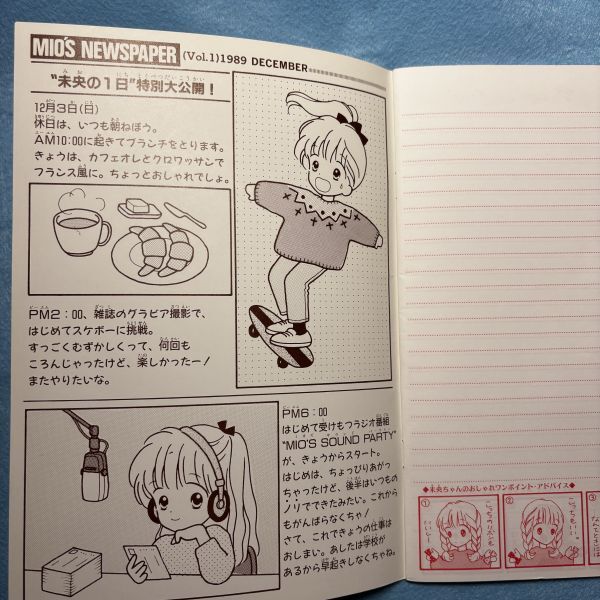 MIO'S NEWSPAPER (Vol.1) 1989 DECEMBER
"未央の1日"特別大公開！
12月3日(日)
休日は、いつも朝ねぼう。
AM10:00に起きてブランチをとります。
きょうは、カフェオレとクロワッサンで
フランス風に。ちょっとおしゃれでしょ。
PM2：00、雑誌のグラビア撮影で、
はじめてスケボーに挑戦。
すっごくむずかしくって、何回も
ころんじゃったけど、楽しかったー！
またやりたいな。
PM6：00
はじめて受けもつラジオ番組
"MIO'S SOUND PARTY"
が、きょうからスタート。
はじめは、ちょっぴりあがっ
ちゃったけど、後半はいつもの
ノリでできたみたい。これから
もがんばらなくちゃ！
さて、これできょうの仕事は
おしまい。あしたは学校が
あるから早起きしなくちゃね。
◆未央ちゃんのおしゃれワンポイント・アドバイス◆
①
②
③